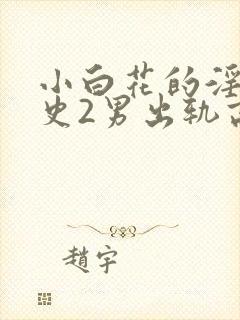 小白花的淫
史2男出轨
趙宇